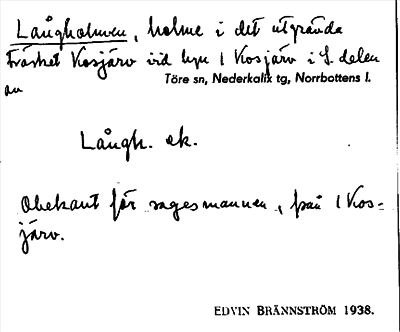 Långholmen, holme i det utgrävda
träsket Kosjärv vid byn 1 Kosjärv i S. delen
av Töre sn, Nederkalix tg, Norrbottens l.
Långh. ek.
Obekant för sagesmannen, från 1 Kos-
järv.
EDVIN BRÄNNSTRÖM 1938.